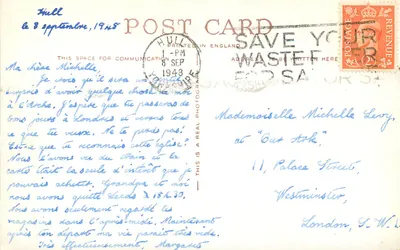 Hull
le 8 septembre, 1948
POST CARD
PRINTED IN ENGLAND
THIS SPACE FOR COMMUNICATION
ADDRESS WRITTEN HERE
HULL
-PM
SEP
1948
YORKSHIRE
SAVE YOUR
WASTE
FOR SA
POSTAGE
REVENUE
THIS IS A REAL PHOTO
Ma chère Michelle,
Je crois qu'il sera
surpris d'avoir quelque chose
à l'école. J'espère que tu passeras de
bons jours à Londres et verras tous
ce que tu veux. Ne te perds pas!
Est-ce que tu reconnais cette église?
Nous l'avons vu du train et la
carte était la seule d'intérêt que je
pouvais acheter. Grandpa et moi
nous avons quitté Leeds à 18.30.
Nous avons seulement regardé les
magasins dans l'après-midi. Maintenant
après ton départ ma vie paraît très vide.
Très affectueusement, Margaret
Mademoiselle Michelle Leroy,
at "Our Ask"
11, Palace Street,
Westminster,
London, S.W.